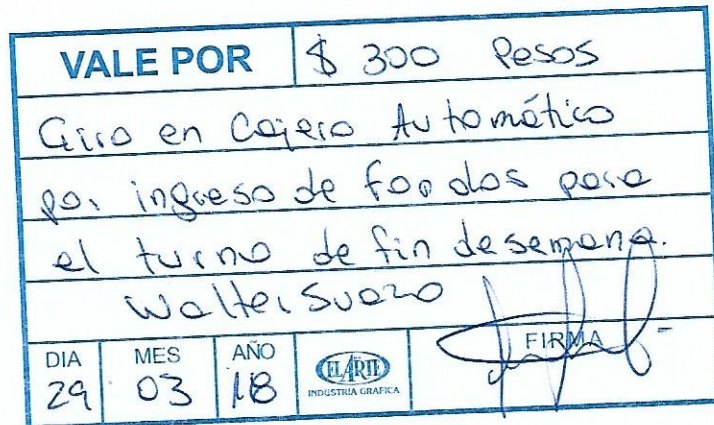 VALE POR $ 300 Pesos
Giro en Cajero Automático
por ingreso de fondos para
el turno de fin de semana.
Walter Suazo
FIRMA
DIA MES AÑO
29 03 18
EL ARTE
INDUSTRIA GRAFICA